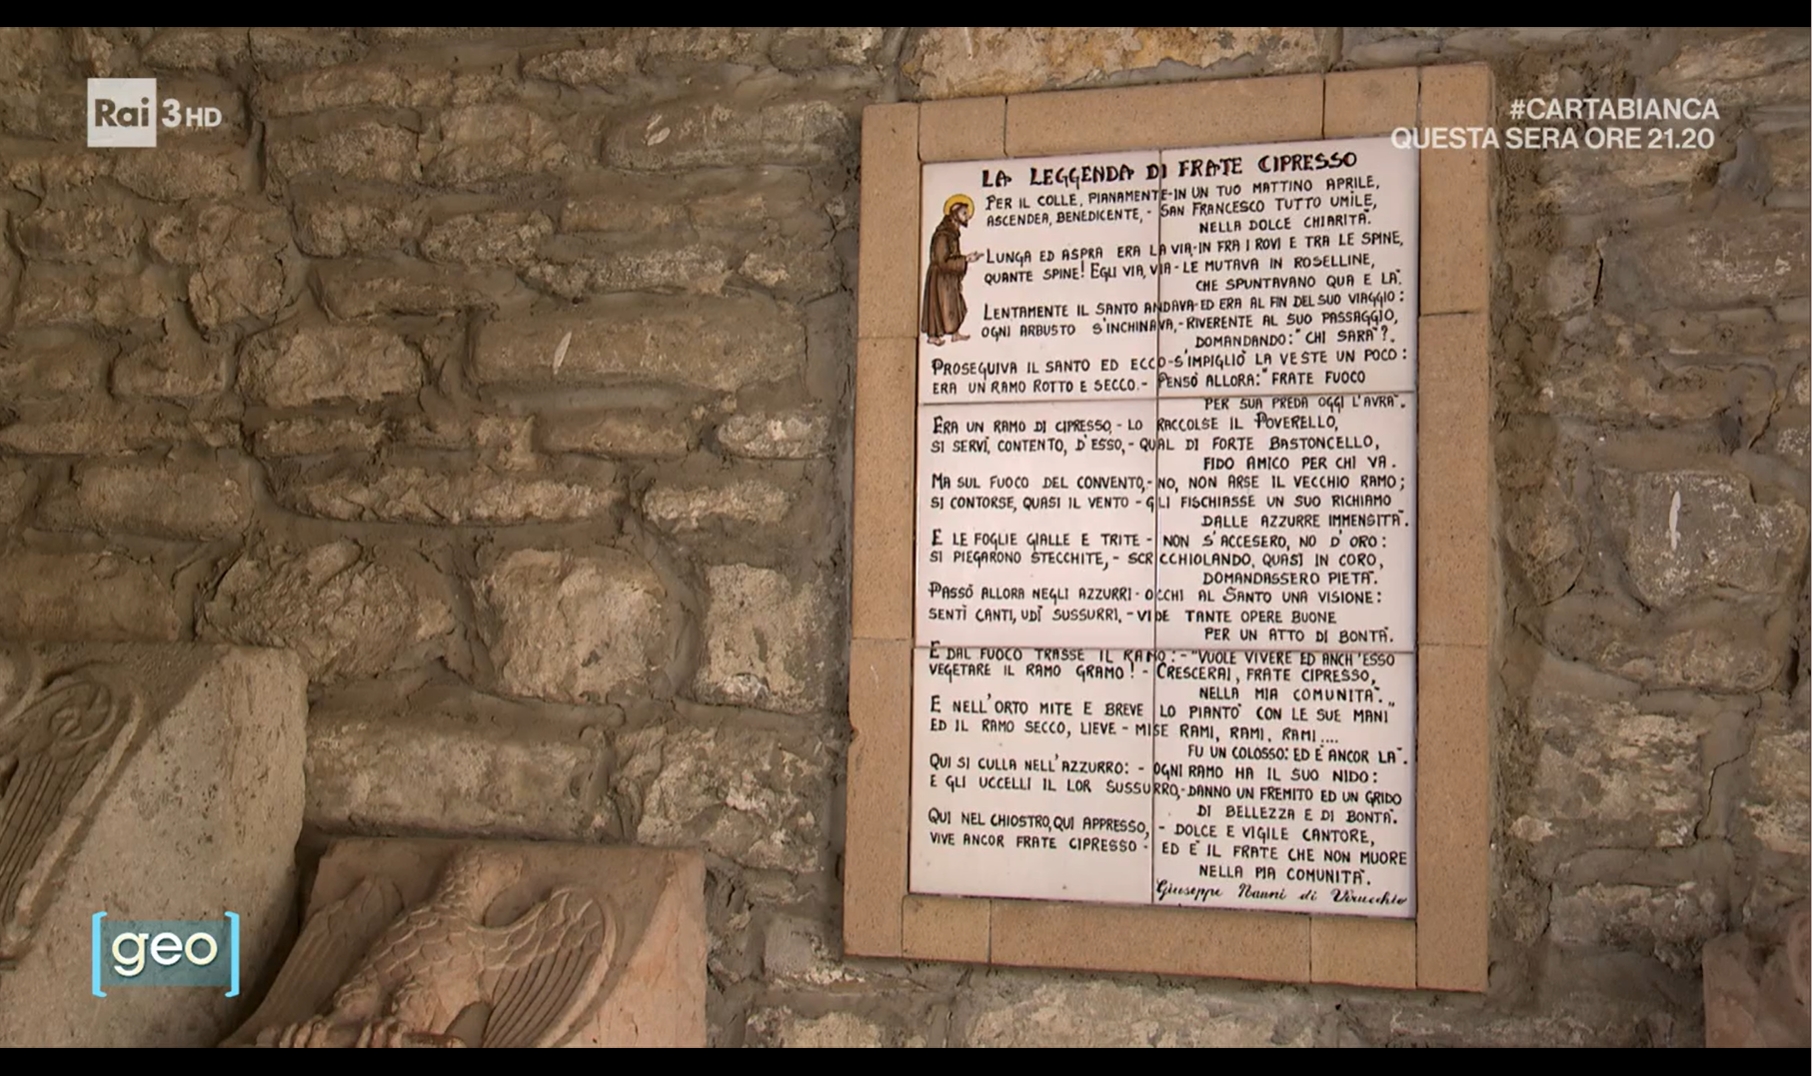 Rai 3 HD
#CARTABIANCA
QUESTA SERA ORE 21.20
LA LEGGENDA DI FRATE CIPRESSO
PER IL COLLE, PIANAMENTE-IN UN TUO MATTINO APRILE,
ASCENDEA, BENEDICENTE, - SAN FRANCESCO TUTTO UMILE,
NELLA DOLCE CHIARITÀ.
LUNGA ED ASPRA ERA LA VIA-IN FRA I ROVI E TRA LE SPINE,
QUANTE SPINE! EGLI VIA, VIA - LE MUTAVA IN ROSELLINE,
CHE SPUNTAVANO QUA E LÀ.
LENTAMENTE IL SANTO ANDAVA-ED ERA AL FIN DEL SUO VIAGGIO:
OGNI ARBUSTO S'INCHINAVA,-RIVERENTE AL SUO PASSAGGIO,
DOMANDANDO: "CHI SARÀ"?.
PROSEGUIVA IL SANTO ED ECCO-S'IMPIGLIÒ LA VESTE UN POCO:
ERA UN RAMO ROTTO E SECCO.- PENSÒ ALLORA: "FRATE FUOCO
PER SUA PREDA OGGI L'AVRÀ".
ERA UN RAMO DI CIPRESSO,- LO RACCOLSE IL POVERELLO,
SI SERVÌ, CONTENTO, D'ESSO,- QUAL DI FORTE BASTONCELLO,
FIDO AMICO PER CHI VA.
MA SUL FUOCO DEL CONVENTO,-NO, NON ARSE IL VECCHIO RAMO;
SI CONTORSE, QUASI IL VENTO - GLI FISCHIASSE UN SUO RICHIAMO
DALLE AZZURRE IMMENSITÀ.
E LE FOGLIE GIALLE E TRITE - NON S'ACCESERO, NO D'ORO:
SI PIEGARONO STECCHITE, - SCRICCHIOLANDO, QUASI IN CORO,
DOMANDASSERO PIETÀ.
PASSÒ ALLORA NEGLI AZZURRI - OCCHI AL SANTO UNA VISIONE:
SENTÌ CANTI, UDÌ SUSSURRI, - VIDE TANTE OPERE BUONE
PER UN ATTO DI BONTÀ.
E DAL FUOCO TRASSE IL RAMO: - "VUOLE VIVERE ED ANCH'ESSO
VEGETARE IL RAMO GRAMO! - CRESCERAI, FRATE CIPRESSO,
NELLA MIA COMUNITÀ".
E NELL'ORTO MITE E BREVE LO PIANTÒ CON LE SUE MANI
ED IL RAMO SECCO, LIEVE - MISE RAMI, RAMI, RAMI....
FU UN COLOSSO: ED È ANCOR LÀ.
QUI SI CULLA NELL'AZZURRO: - OGNI RAMO HA IL SUO NIDO:
E GLI UCCELLI IL LOR SUSSURRO,-DANNO UN FREMITO ED UN GRIDO
DI BELLEZZA E DI BONTÀ.
QUI NEL CHIOSTRO, QUI APPRESSO, - DOLCE E VIGILE CANTORE,
VIVE ANCOR FRATE CIPRESSO - ED È IL FRATE CHE NON MUORE
NELLA PIA COMUNITÀ.
Giuseppe Nanni di Verucchio
[geo]